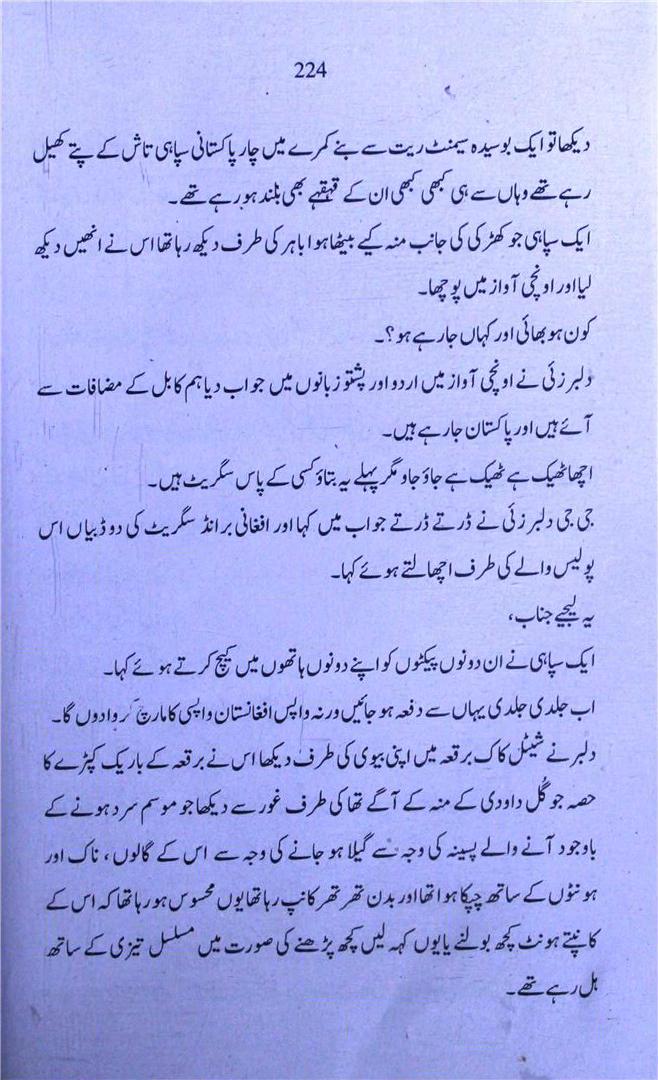 224
دیکھا تو ایک بوسیدہ سیمنٹ ریت سے بنے کمرے میں چار پاکستانی سپاہی تاش کے پتے کھیل
رہے تھے وہاں سے ہی کبھی کبھی ان کے قہقہے بھی بلند ہو رہے تھے۔
ایک سپاہی جو کھڑکی کی جانب منہ کیے بیٹھا ہوا باہر کی طرف دیکھ رہا تھا اس نے انھیں دیکھ
لیا اور اونچی آواز میں پوچھا۔
کون ہو بھائی اور کہاں جا رہے ہو؟۔
دلبر زئی نے اونچی آواز میں اردو اور پشتو زبانوں میں جواب دیا ہم کابل کے مضافات سے
آئے ہیں اور پاکستان جا رہے ہیں۔
اچھا ٹھیک ہے ٹھیک ہے جاؤ جاو مگر پہلے یہ بتاؤ کسی کے پاس سگریٹ ہیں۔
جی جی دلبر زئی نے ڈرتے ڈرتے جواب میں کہا اور افغانی برانڈ سگریٹ کی دو ڈبیاں اس
پولیس والے کی طرف اچھالتے ہوئے کہا۔
یہ لیجیے جناب،
ایک سپاہی نے ان دونوں پیکٹوں کو اپنے دونوں ہاتھوں میں کیچ کرتے ہوئے کہا۔
اب جلدی جلدی یہاں سے دفعہ ہو جائیں ورنہ واپس افغانستان واپسی کا مارچ کروا دوں گا۔
دلبر نے شیٹل کاک برقعہ میں اپنی بیوی کی طرف دیکھا اس نے برقعہ کے باریک کپڑے کا
حصہ جو گُل داودی کے منہ کے آگے تھا کی طرف غور سے دیکھا جو موسم سرد ہونے کے
باوجود آنے والے پسینہ کی وجہ سے گیلا ہو جانے کی وجہ سے اس کے گالوں، ناک اور
ہونٹوں کے ساتھ چپکا ہوا تھا اور بدن تھر تھر کانپ رہا تھا یوں محسوس ہو رہا تھا کہ اس کے
کانپتے ہونٹ کچھ بولنے یا یوں کہہ لیں کچھ پڑھنے کی صورت میں مسلسل تیزی کے ساتھ
ہل رہے تھے۔